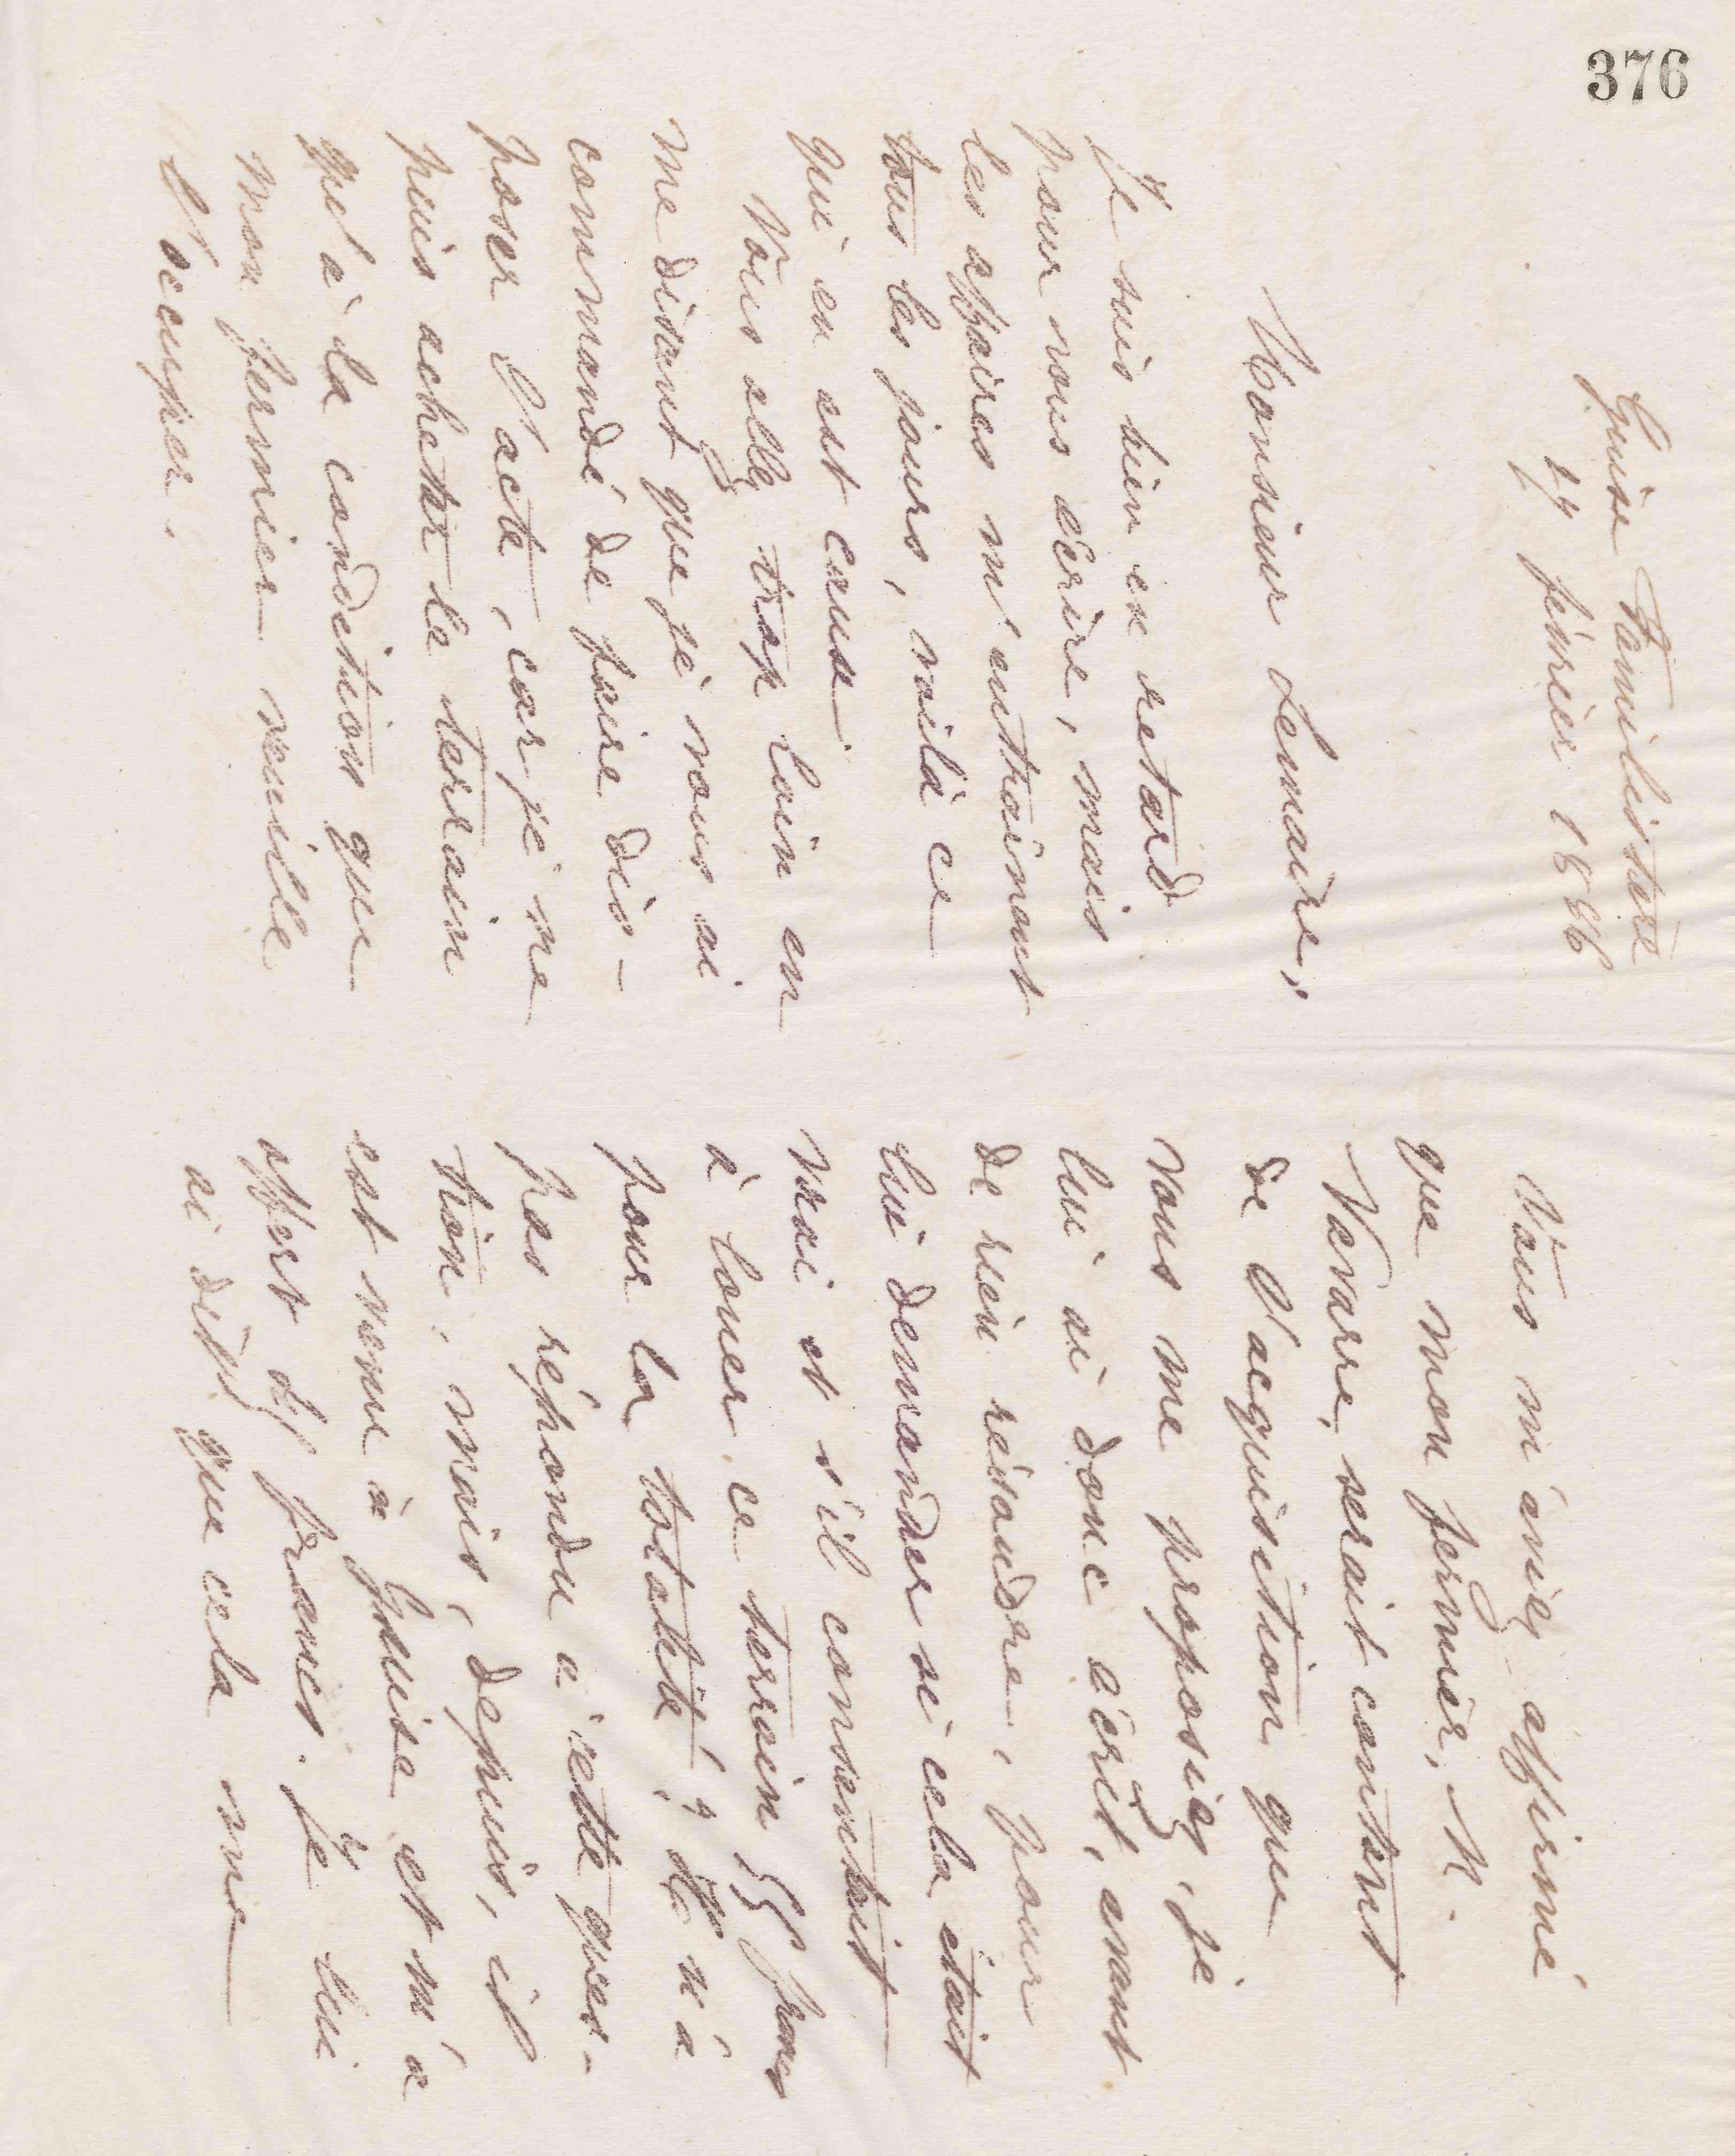 376
Guise Familistère
27 février 1886
Monsieur Lemaire,
Je suis bien en retard
pour vous écrire, mais
les affaires m'entraînent
tous les jours, voilà ce
qui en est cause.
Vous allez trop loin en
me disant que je vous ai
commandé de faire dis-
poser l'acte, car je ne
puis acheter le terrain
qu'à la condition que
mon fermier veuille
l'occuper.
Vous m'aviez affirmé
que mon fermier, M.
Navarre, serait content
de l'acquisition que
vous me proposiez. Je
lui ai donc écrit, avant
de rien résoudre, pour
lui demander si cela était
vrai et s'il consentait
à louer ce terrain 55 francs
pour la totalité; Il n'a
pas répondu à cette ques-
tion; mais, depuis, il
est venu à Guise et m'a
offert francs. Je lui
ai dit que cela me